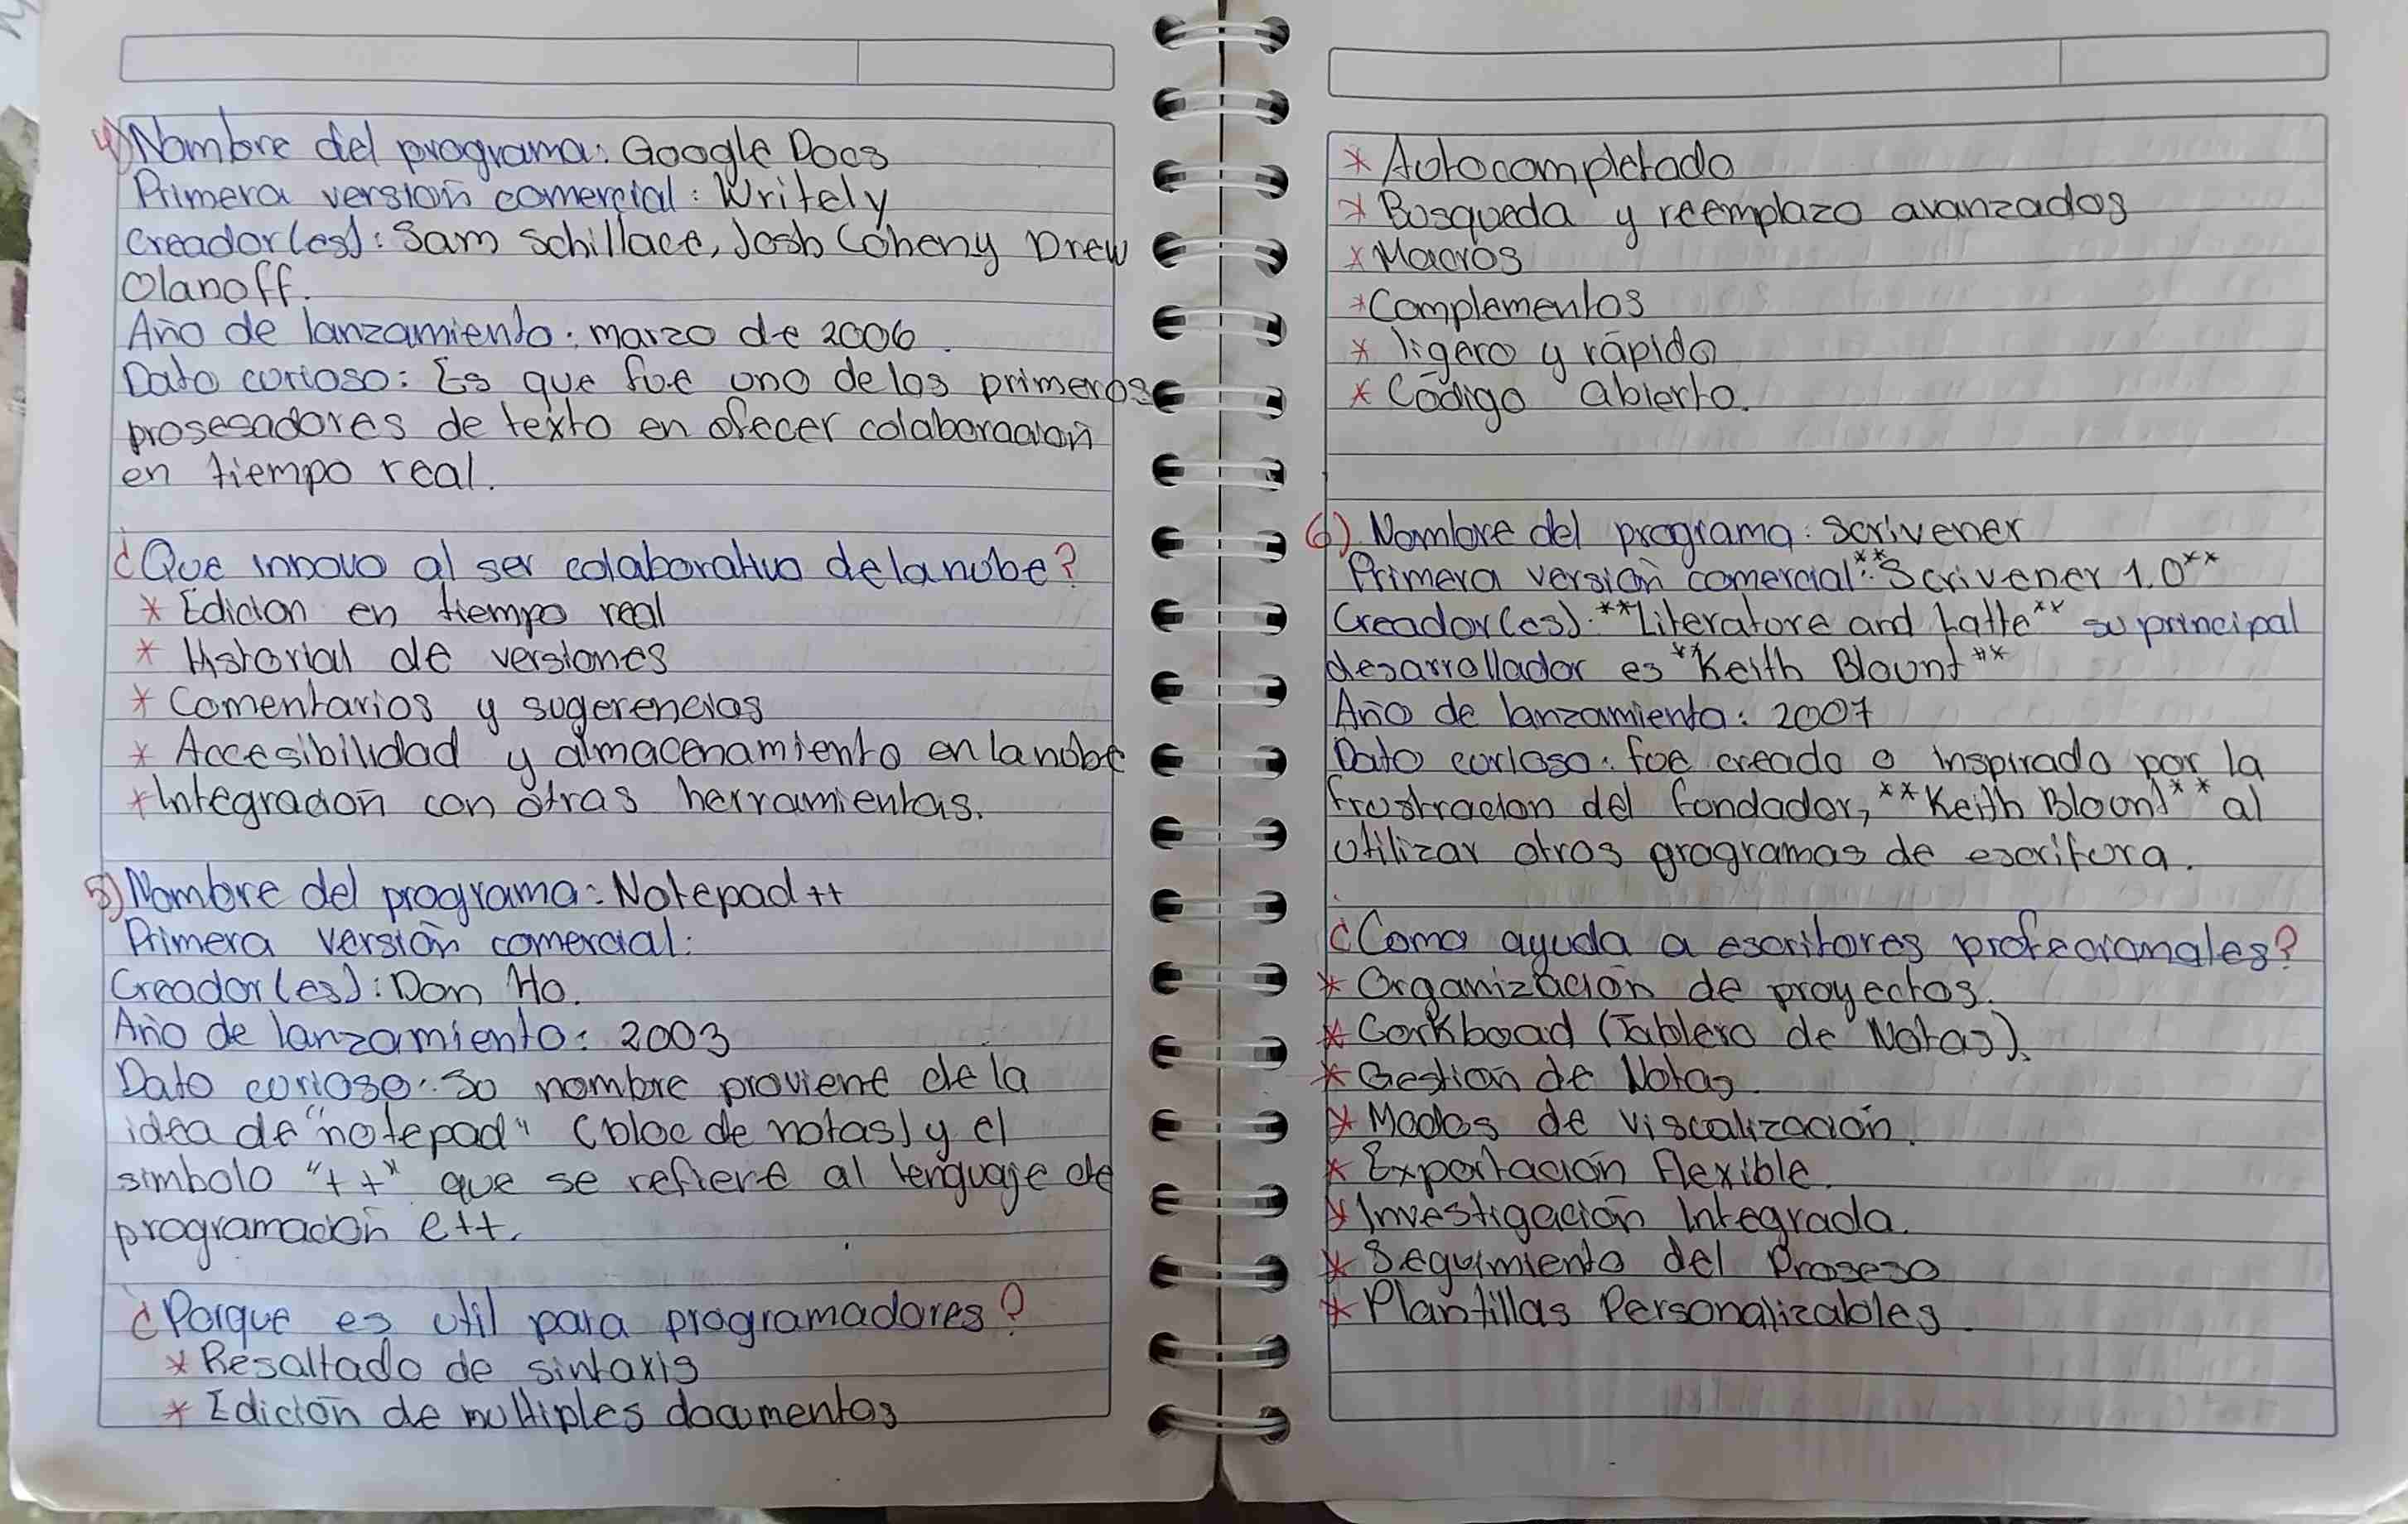 4) Nombre del programa: Google Docs
Primera versión comercial: Writely
Creador(es): Sam Schillace, Josh Coheny Drew
Olanoff.
Año de lanzamiento: marzo de 2006.
Dato curioso: Es que fue uno de los primeros
prosesadores de texto en ofecer colaboración
en tiempo real.
¿Que innovo al ser colaborativo de la nube?
* Edicion en tiempo real
* Historial de versiones
* Comentarios y sugerencias
* Accesibilidad y almacenamiento en la nube
* Integración con otras herramientas.
5) Nombre del programa: Notepad ++
Primera versión comercial:
Creador(es): Don Ho.
Año de lanzamiento: 2003
Dato curioso: Su nombre proviene de la
idea de "notepad" (bloc de notas) y el
simbolo "++" que se refiere al lenguaje de
programación c++.
¿Porque es util para programadores?
* Resaltado de sintaxis
* Edición de multiples documentos
* Autocompletado
* Busqueda y reemplazo avanzados
* Macros
* Complementos
* ligero y rápido
* Código abierto.
6) Nombre del programa: Scrivener
Primera versión comercial: **Scrivener 1.0**
Creador(es): **Literature and Latte** su principal
desarrollador es **Keith Blount**
Año de lanzamiento: 2007
Dato curioso: fue creado o inspirado por la
frustracion del fundador, **Keith Blount** al
utilizar otros programas de escritura.
¿Como ayuda a escritores profecionales?
* Organización de proyectos.
* Corkboad (Tablero de Notas).
* Gestion de Notas.
* Modos de viscalización.
* Exportación Flexible.
* Investigación Integrada.
* Seguimiento del Proseso
* Plantillas Personalizables.